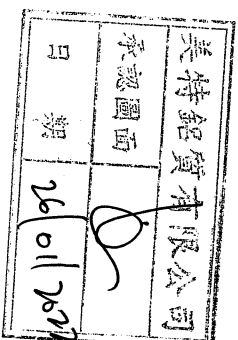 美特鋁質有限公司
承認圖面
日期 26/01/202